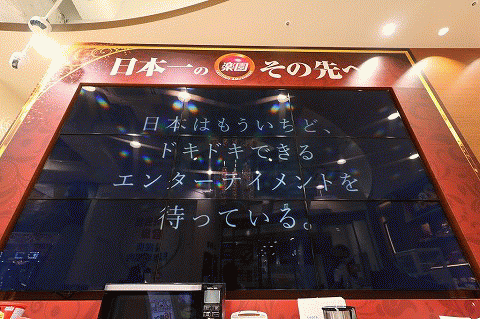 日本一の 楽園 その先へ
日本はもういちど、
ドキドキできる
エンターテイメントを
待っている。